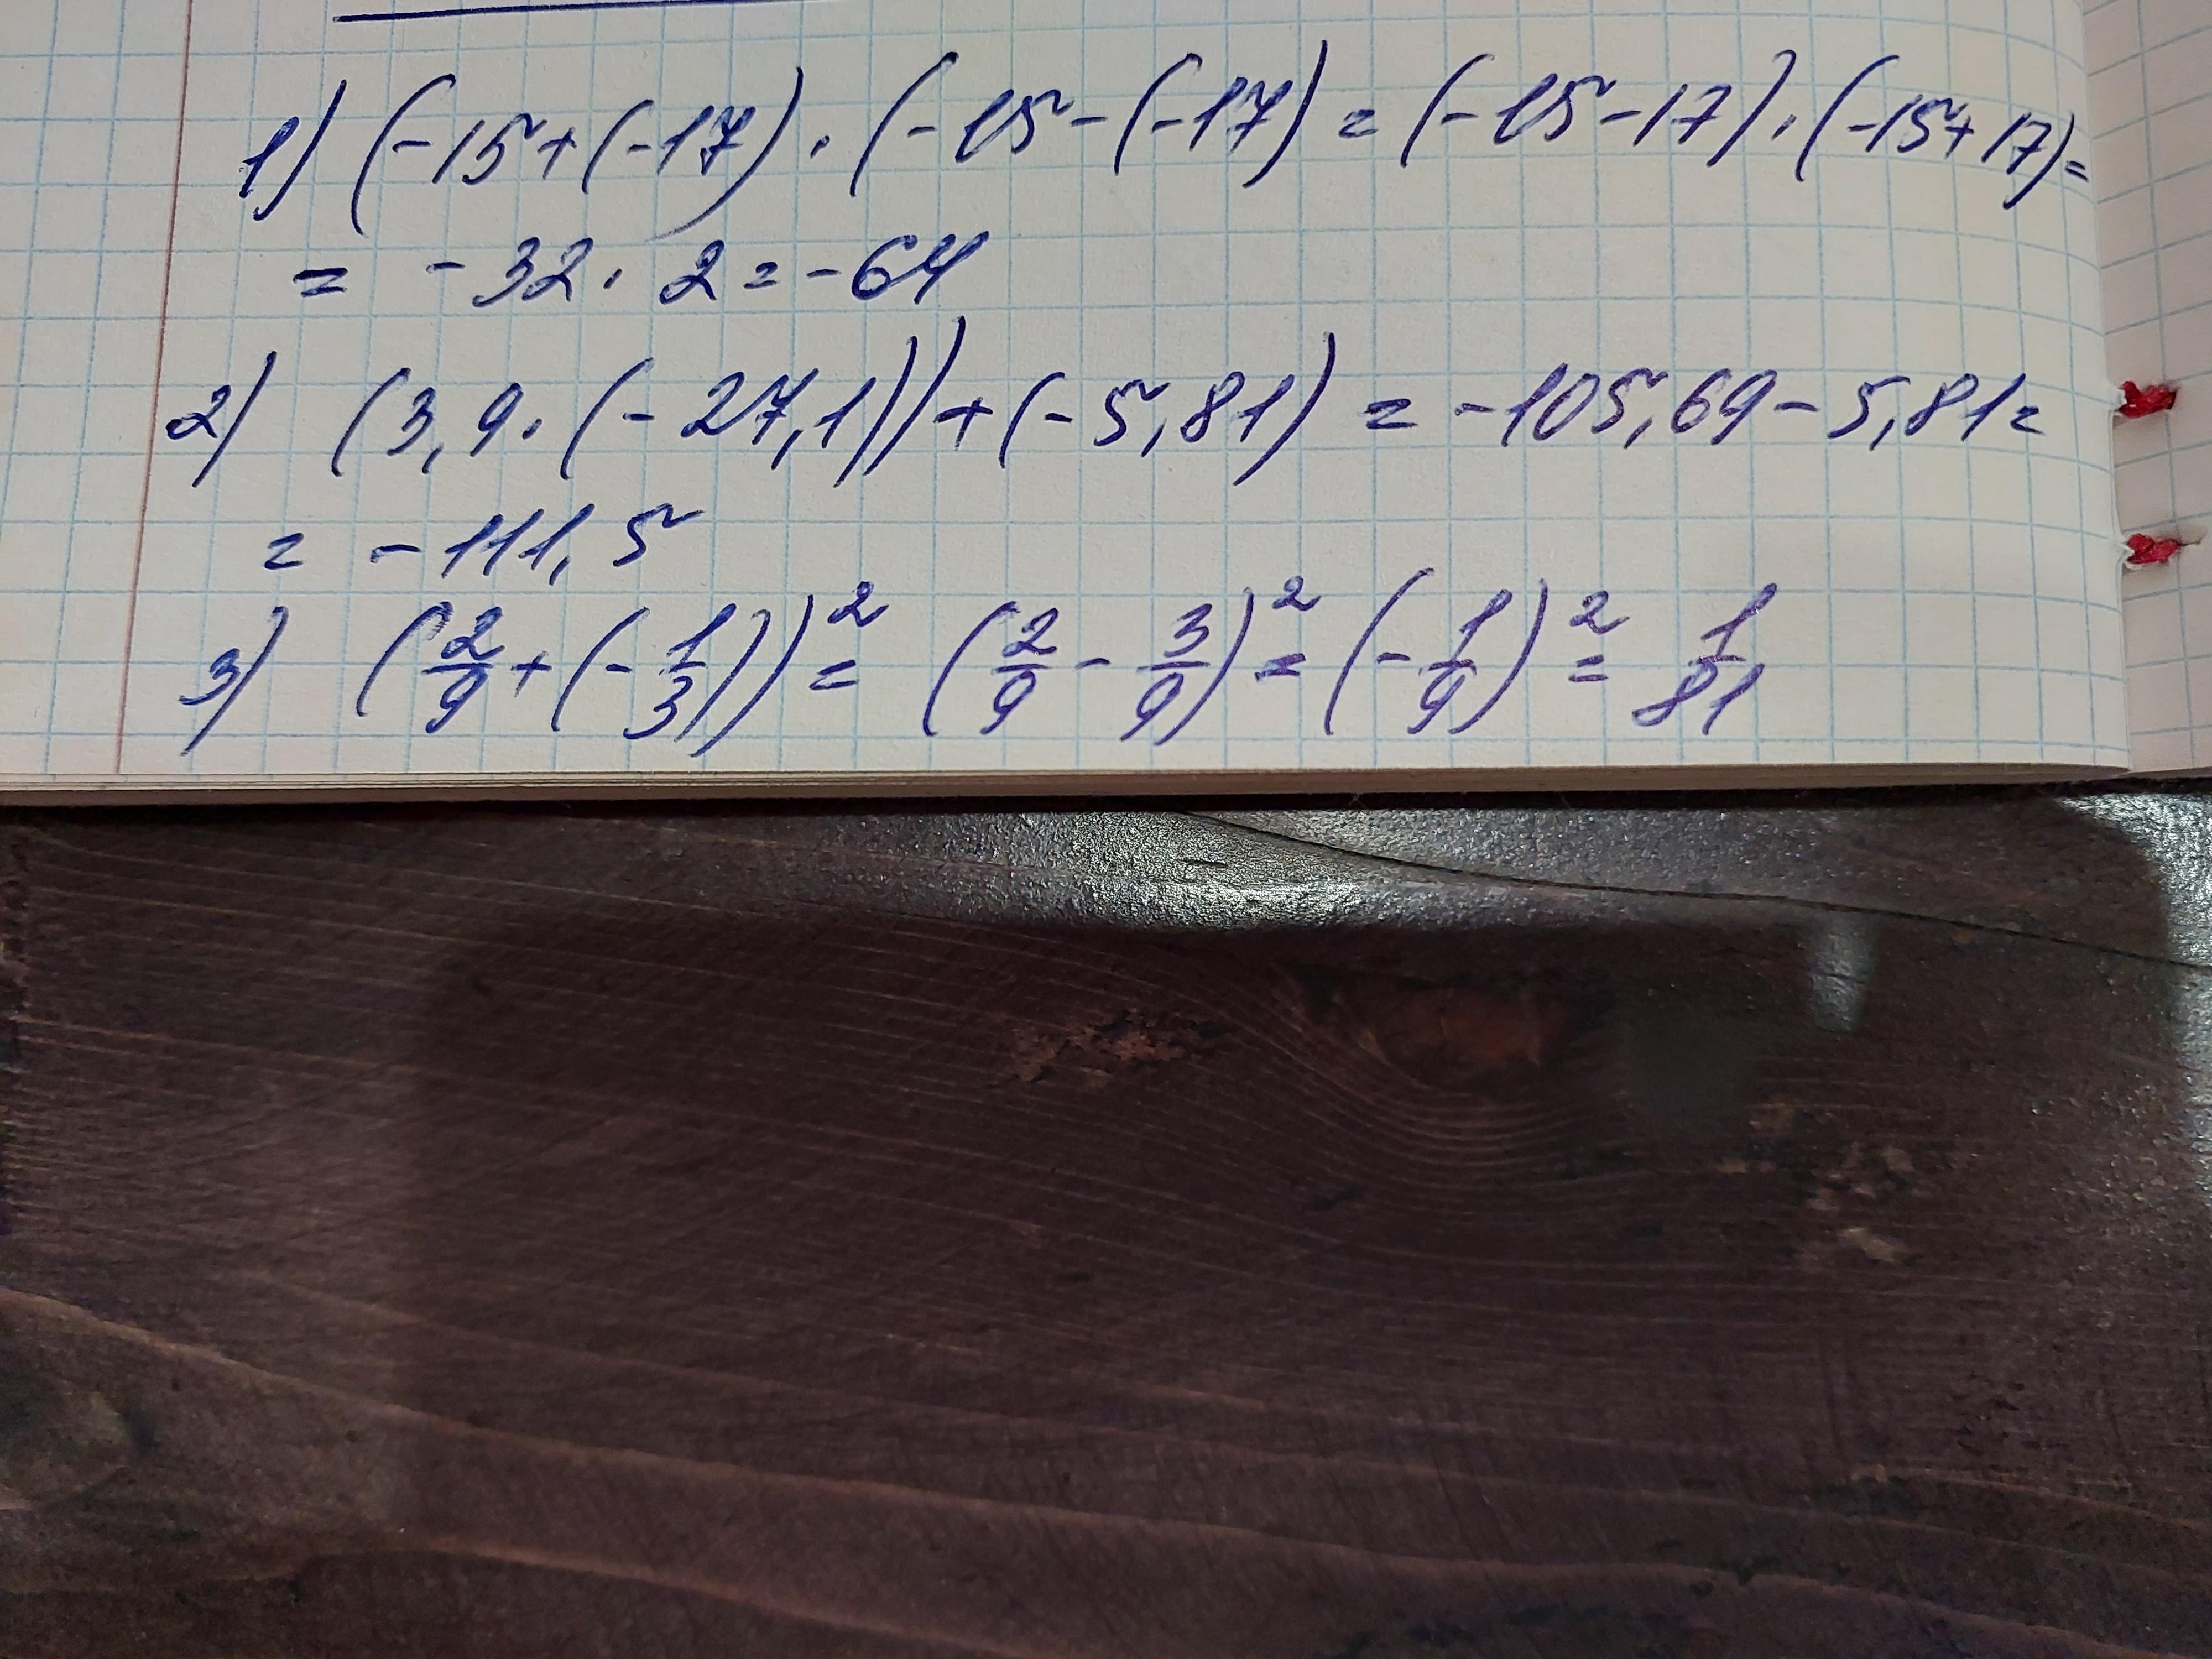 1) (-15+(-17) · (-15-(-17) = (-15-17) · (-15+17)=
= -32 · 2 = -64
2) (3,9 · (-27,1))+(-5,81) = -105,69-5,81=
= -111,5
3) (2/9+(-1/3))² = (2/9 - 3/9)² = (-1/9)² = 1/81